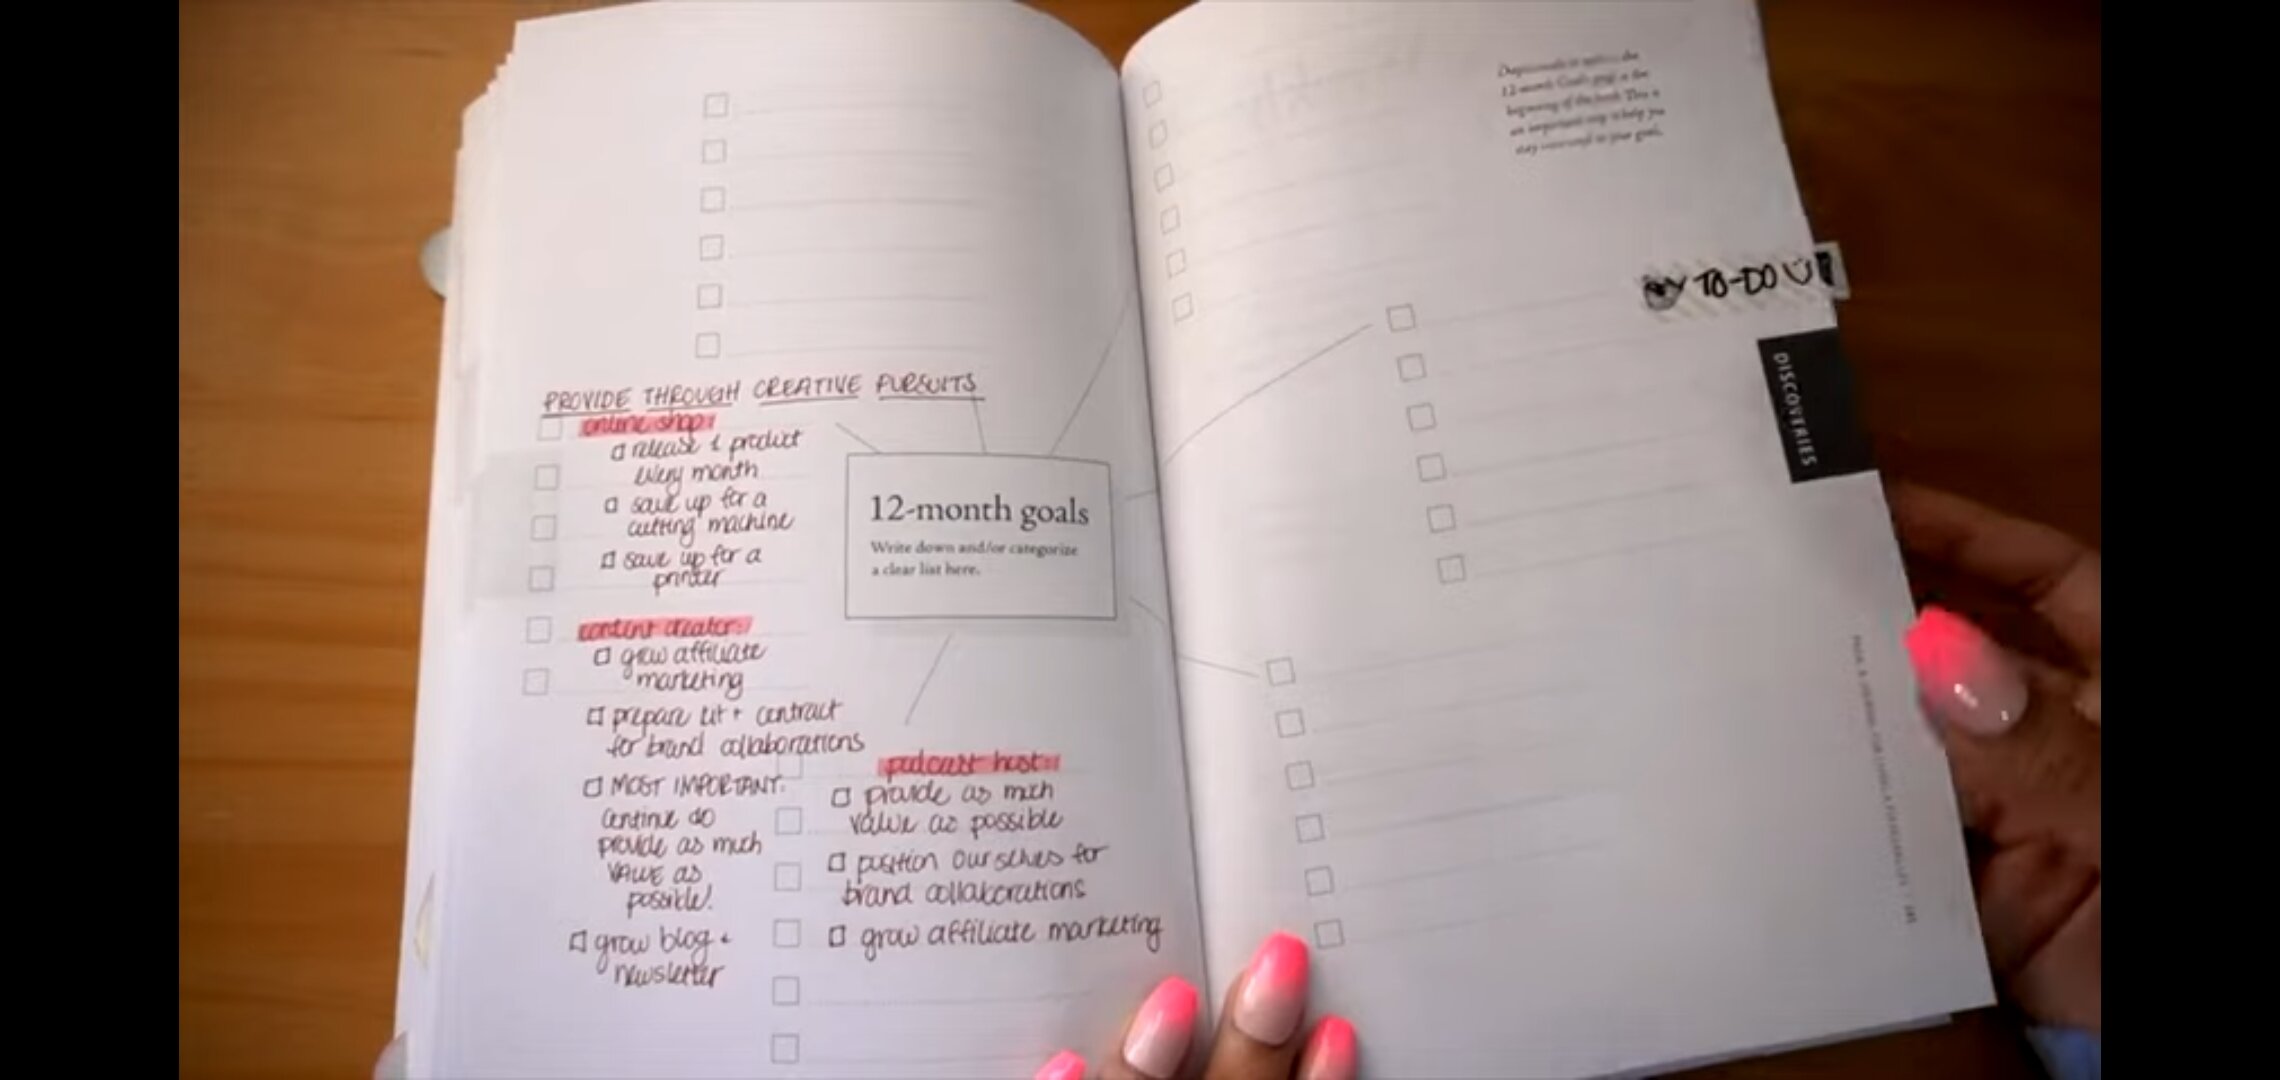 PROVIDE THROUGH CREATIVE PURSUITS
online shop:
release 1 product
every month
save up for a
cutting machine
save up for a
printer
content creator:
grow affiliate
marketing
prepare kit + contract
for brand collaborations
MOST IMPORTANT:
continue to
provide as much
VALUE as
possible!
grow blog +
newsletter
12-month goals
Write down and/or categorize
a clear list here.
podcast host:
provide as much
value as possible
position ourselves for
brand collaborations
grow affiliate marketing
12-month Goals
beginning of the book. This is
an important step to help you
stay your goals.
TO-DO
DISCOVERIES